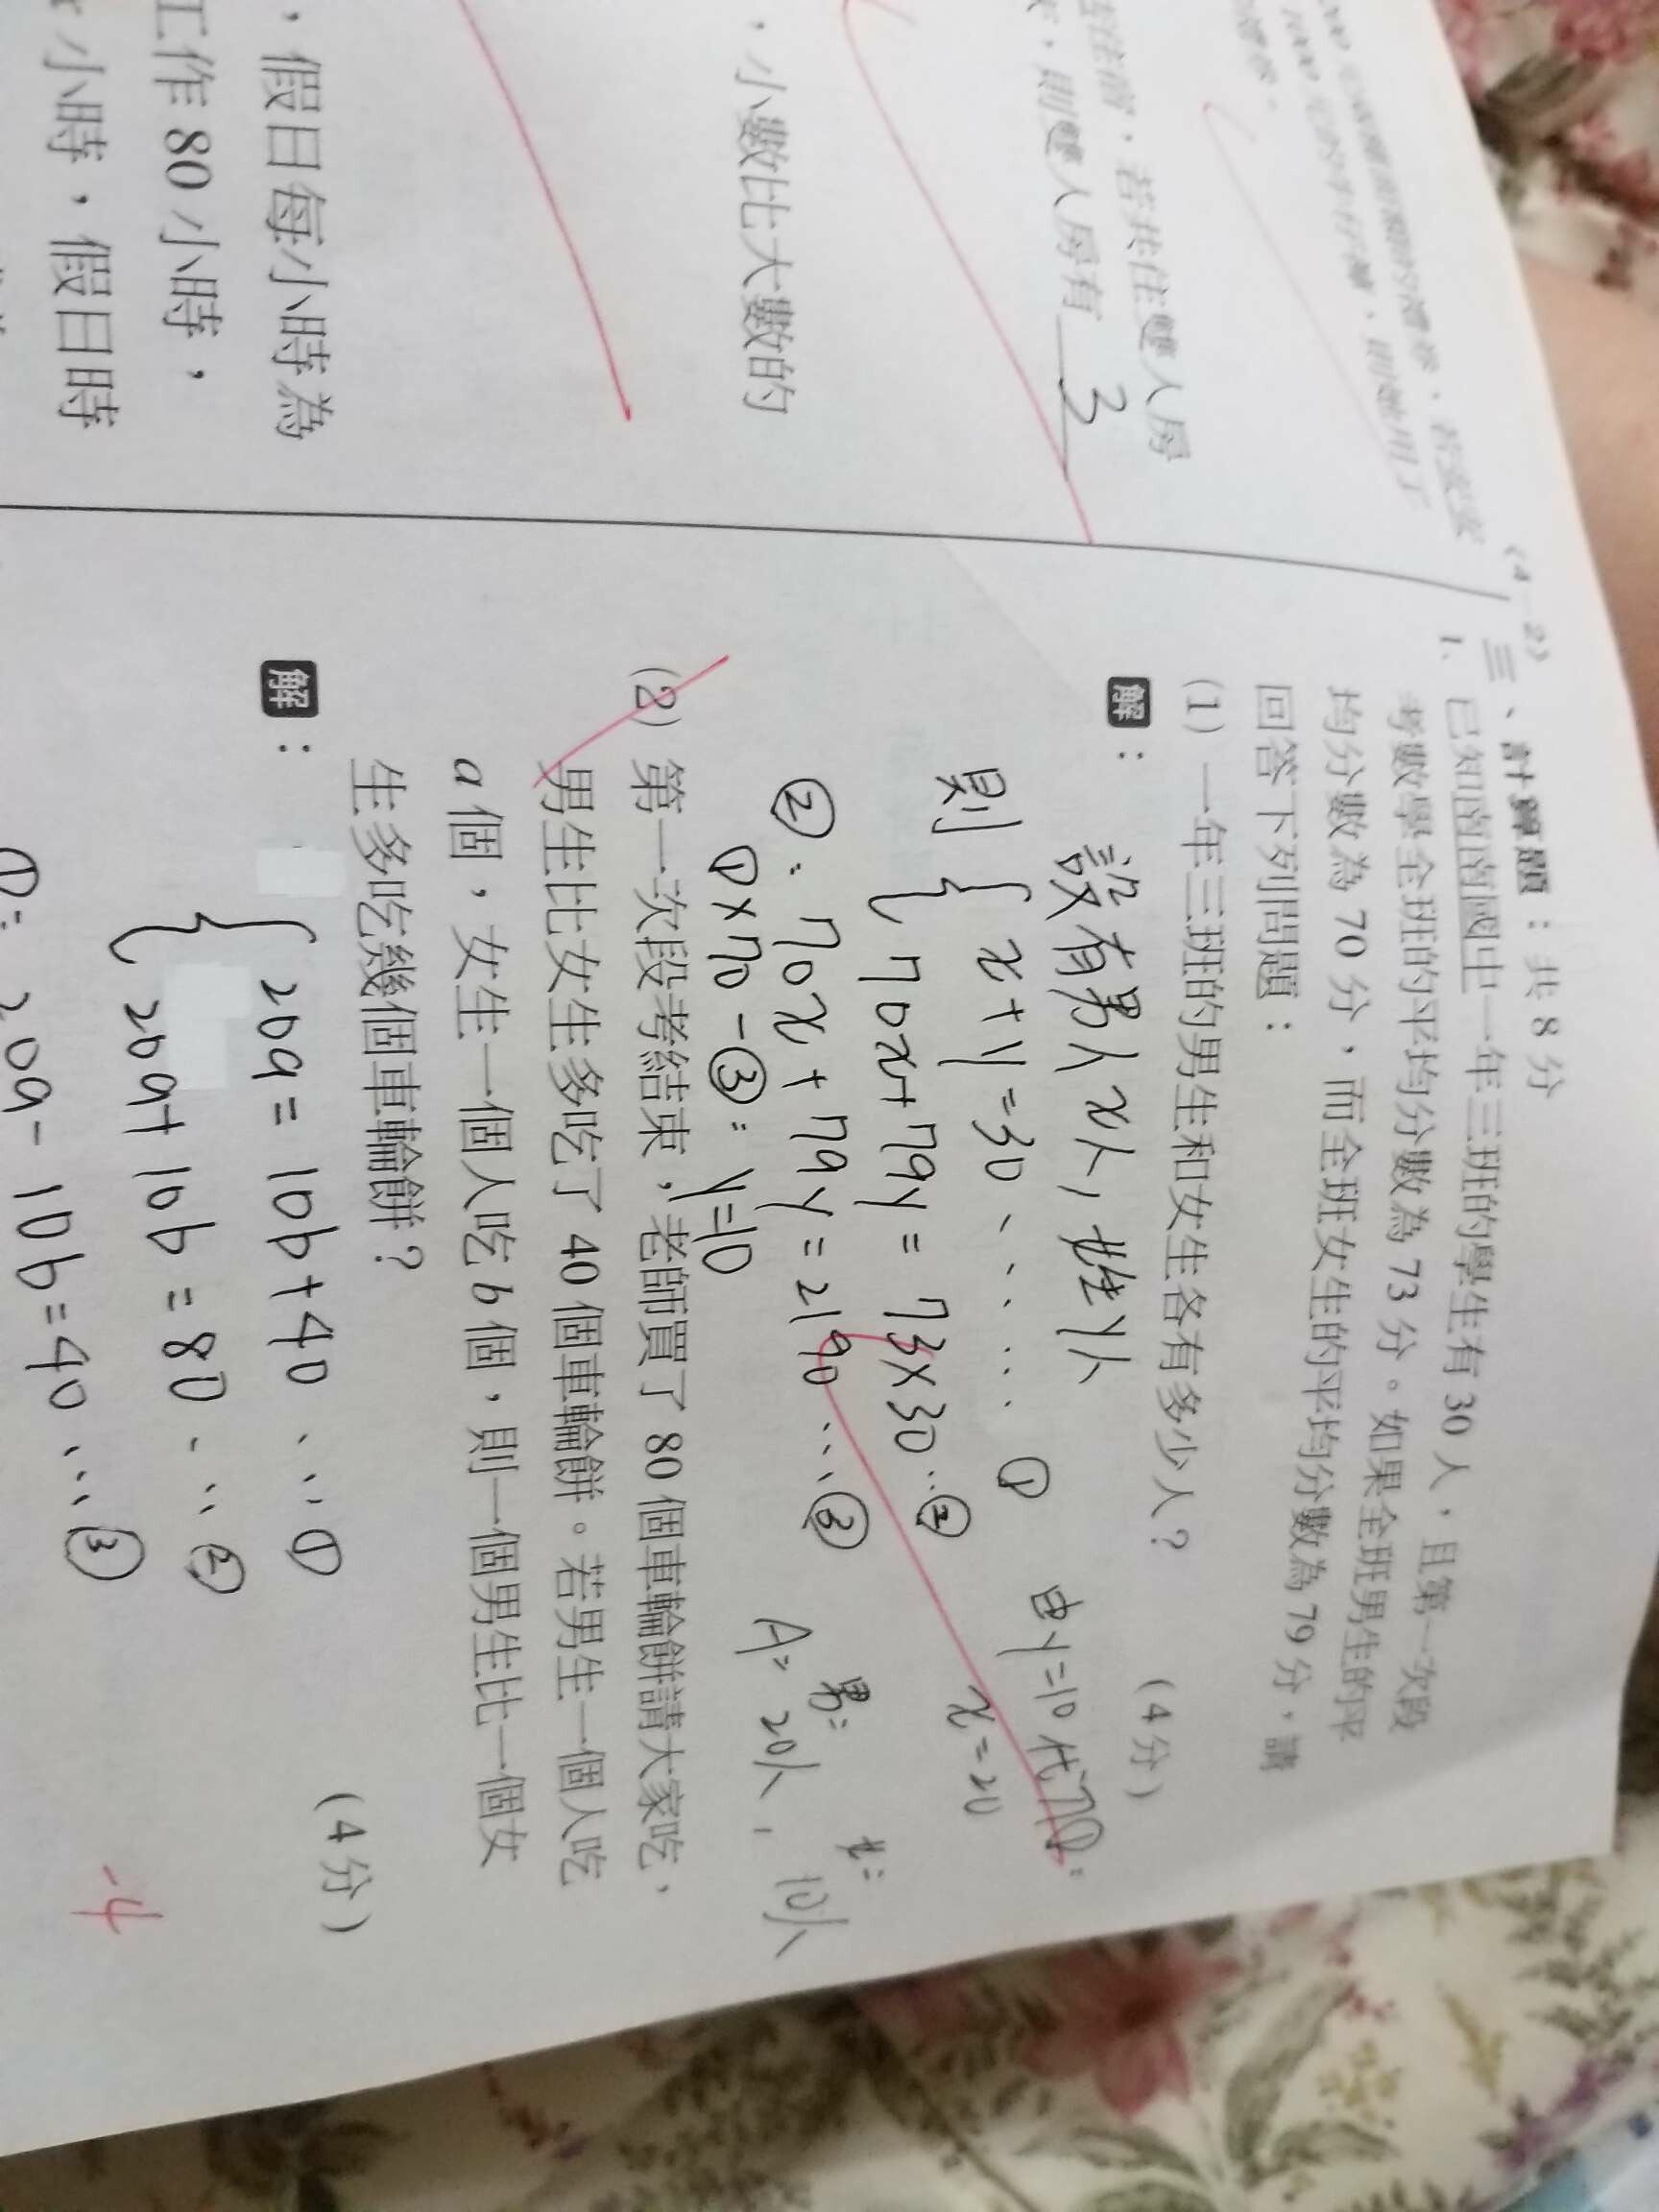 1000 元的全年存摺,則她用了
房住滿,若共住雙人房
,則雙人房有 3
,小數比大數的
,假日每小時為
工作 80 小時,
小時,假日時
(4-2)
三、計算題:共 8 分
1. 已知南南國中一年三班的學生有 30 人,且第一次段
考數學全班的平均分數為 73 分。如果全班男生的平
均分數為 70 分,而全班女生的平均分數為 79 分,請
回答下列問題:
(1) 一年三班的男生和女生各有多少人?(4 分)
解:
設有男人x人,女生y人
則{ x+y=30 ..... ①
70x+79y=73×30 .. ②
②:70x+79y=2190 ... ③
①×70-③:y=10
由y=10代①:
x=20
男: 女:
A: 20人, 10人
(2) 第一次段考結束,老師買了 80 個車輪餅請大家吃,
男生比女生多吃了 40 個車輪餅。若男生一個人吃
a 個,女生一個人吃 b 個,則一個男生比一個女
生多吃幾個車輪餅?(4 分)
解:
{ 20a=10b+40 ... ①
20a+10b=80 ... ②
①:20a-10b=40 ... ③
-4